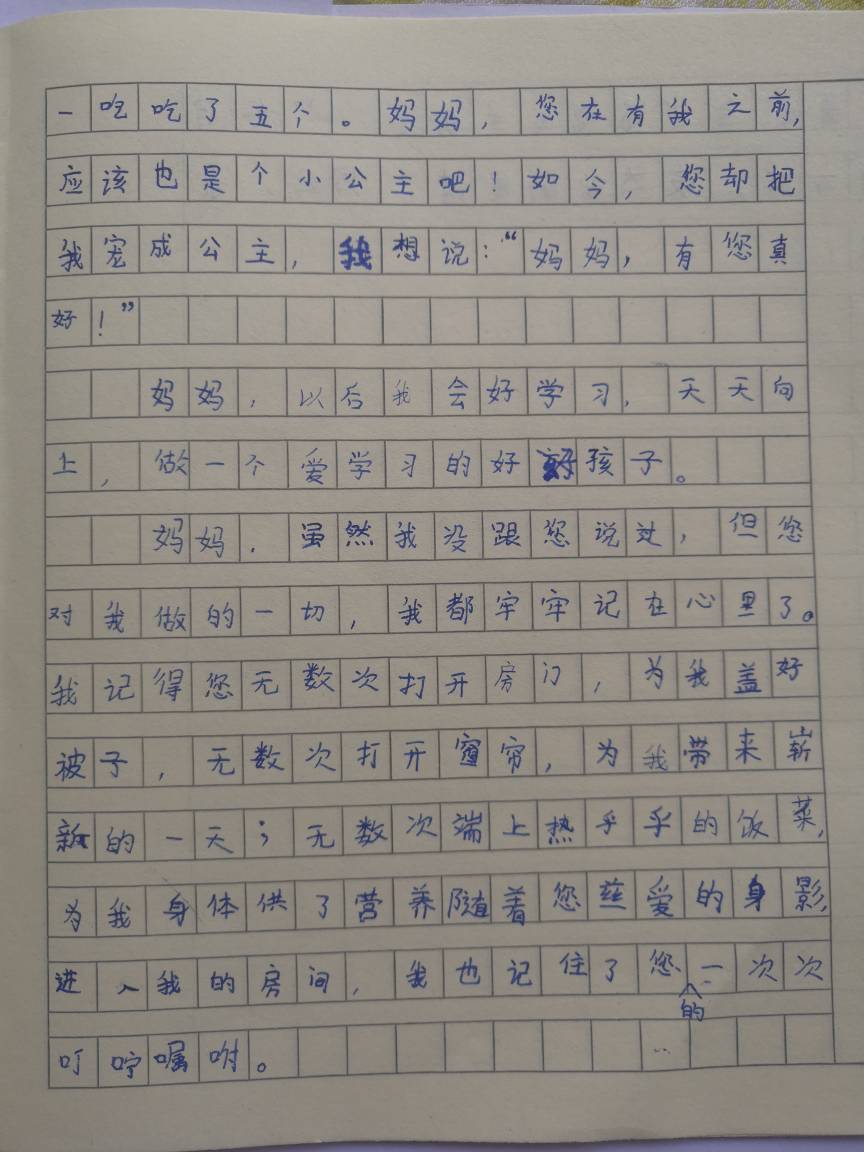 一吃吃了五个。妈妈，您在有我之前，
应该也是个小公主吧！如今，您却把
我宠成公主，我想说：“妈妈，有您真
好！”
妈妈，以后我会好学习，天天向
上，做一个爱学习的好孩子。
妈妈．虽然我没跟您说过，但您
对我做的一切，我都牢牢记在心里了。
我记得您无数次打开房门，为我盖好
被子，无数次打开窗帘，为我带来崭
新的一天；无数次端上热乎乎的饭菜，
为我身体供了营养随着您慈爱的身影，
进入我的房间，我也记住了您的一次次
叮咛嘱咐。